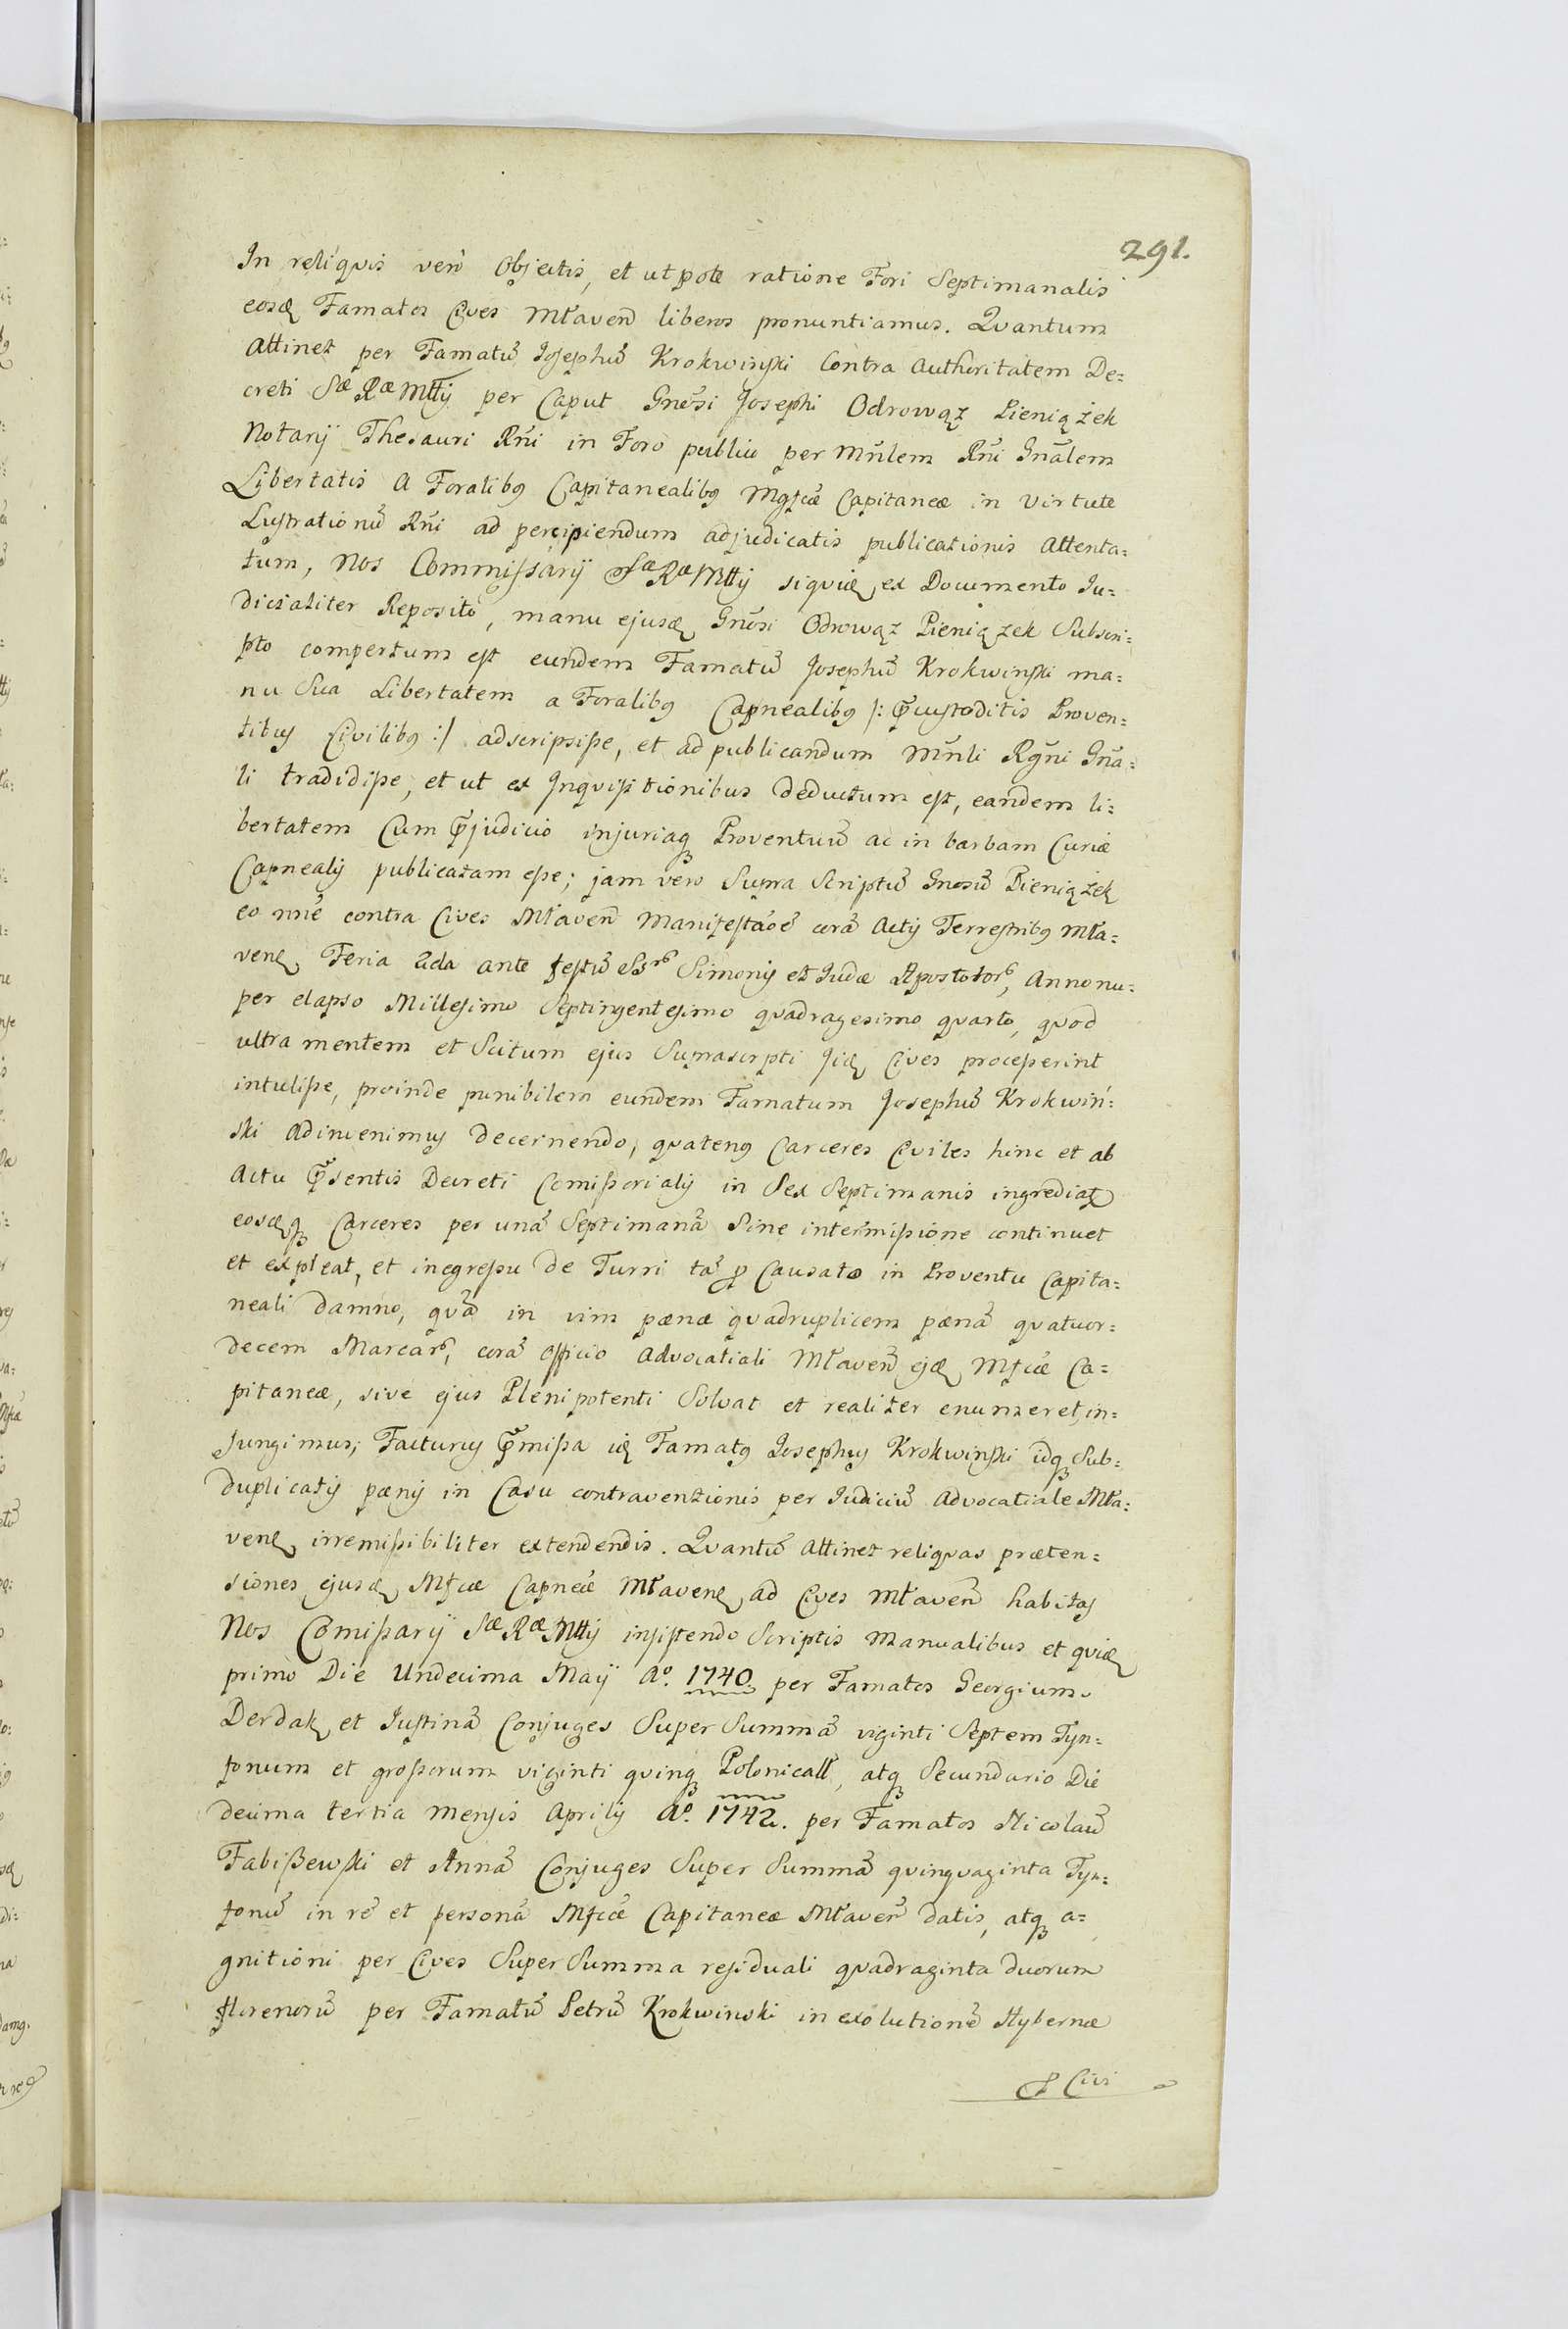 291.
In reliquis verò Objectis, et utpote ratione Fori Septimanalis
eosdē Famatos Cives Mławeñ liberos pronuntiamus. Qvantum
Attinet per Famatū Josephū Krokwinski Contra Authoritatem De=
creti Sæ Ræ Mttis per Caput Gnōsi Josephi Odrowąz Pieniążek
Notarij Thesauri Rñi in Foro publico per Mñlem Rñi Gnãlem
Libertatis a Foralibq Capitanealibq Mgfcæ Capitaneæ in Virtute
Lustrationū Rñi ad percipiendum adjudicatis publicationis Attenta=
tum, Nos Commissarij Sæ Ræ Mttis siquidē ex Documento Ju=
dicialiter Reposito, manu ejusdē Gnōsi Odrowąz Pieniązek Subscri=
pto compertum est eundem Famatū Josephū Krokwinski ma=
nu Sua Libertatem a Foralibq Capnealibq /: P̃custoditis Proven=
tibus Civilibq :/ adscripsisse, et ad publicandum Mñli Rgñi Gnã=
li tradidisse, et ut ex Inquisitionibus deductum est, eandem li=
bertatem Cum P̃judicio injuriaq Proventuū ac in barbam Curiæ
Capnealis publicatam esse; jam vero Supra Scriptū Gnosū Pieniążek
eo nñe contra Cives Mławeñ Manifestãõe corā Actis Terrestribq Mła=
venē Feria 2da ante festū SSrū Simonis et Judæ Apostolor, Anno nu=
per elapso Millesimo Septingentesimo quadragesimo quarto, quod
ultra mentem et Scitum ejus Suprascrpti Jidē Cives processerint
intulisse, proinde punibilem eundem Famatum Josephū Krokwiń=
ski adinvenimus decernendo, quatenq Carceres Civiles hinc et ab
Actu P̃sentis Decreti Comissorialis in Sex Septimanis ingrediatr
eosdēq Carceres per unā Septimanā Sine intermissione continuet
et expleat, et in egressu de Turri tā p Causato in Proventu Capita=
neali damno, quā in vim pænæ quadruplicem pænā quatuor=
decem Marcar, corā Officio Advocatiali Mławeñ ejdē Mfcæ Ca=
pitaneæ, sive ejus Plenipotenti Solvat et realiter enumeret, in=
jungimus; Facturus P̃missa idē Famatq Josephus Krokwinski idq Sub=
duplicatis pænis in Casu contraventionis per Judiciū Advocatiale Mła=
venē irremissibiliter extendendis. Qvantū Attinet reliquas præten=
siones ejusdē Mfcæ Capneæ Mławenē ad Cives Mławeñ habitas
Nos Comissarij Sæ Ræ Mttis insistendo Scriptis Manualibus et quidē
primo Die Undecima Maij Ao. 1740 per Famatos Georgium
Derdak et Justinā Conjuges Super Summā viginti Septem Tyn=
fonum et grossorum viginti quinq Polonicall, atq Secundario Die
decima tertia Mensis Aprilis Ao. 1742. per Famatos Nicolaū
Fabiszewski et Annā Conjuges Super Summā quinquaginta Tyn=
fonū in rē et personā Mfcæ Capitaneæ Mławeñ datis, atq a=
gnitioni per Cives Super Summa residuali quadraginta duorum
florenorū per Famatū Petrū Krokwinski in exolutionē Hybernæ
Civi